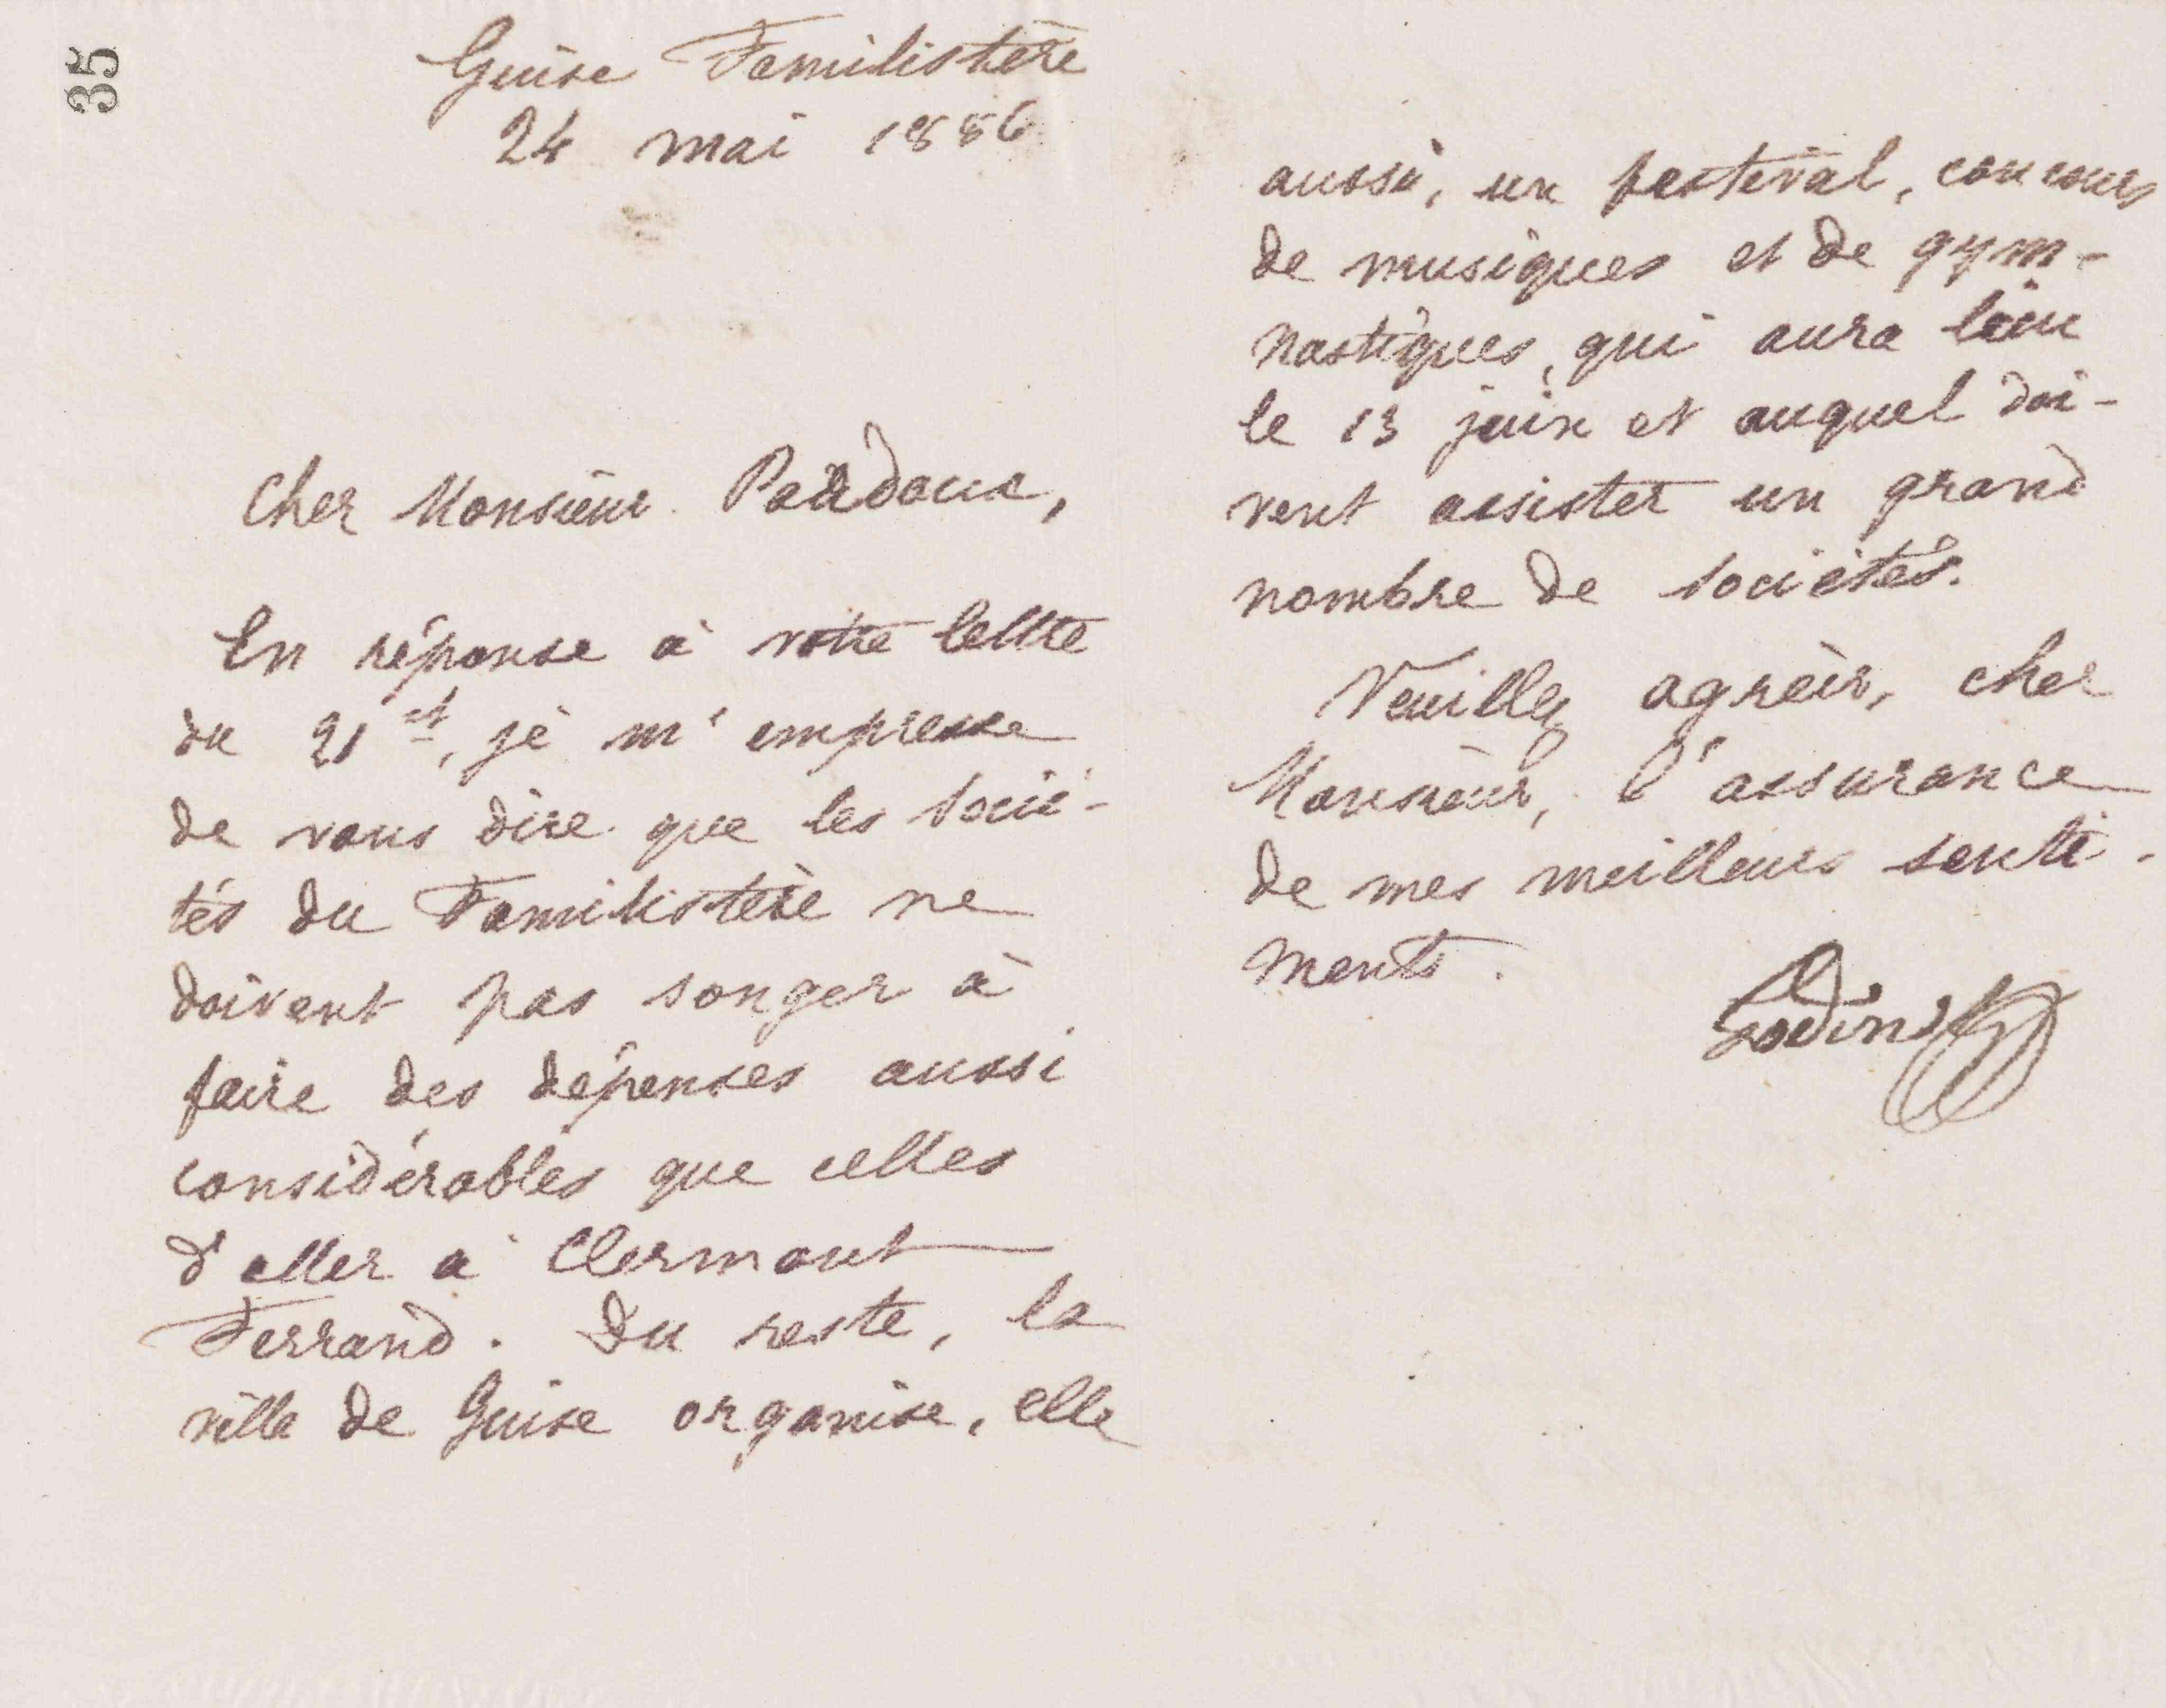 35
Guise Familistère
24 mai 1886
Cher Monsieur Pardoux,
En réponse à votre lettre
du 21 ct, je m'empresse
de vous dire que les socié-
tés du Familistère ne
doivent pas songer à
faire des dépenses aussi
considérables que celles
d'aller à Clermont
Ferrand. Du reste, la
ville de Guise organise, elle
aussi, un festival, concours
de musiques et de gym-
nastiques, qui aura lieu
le 13 juin et auquel doi-
vent assister un grand
nombre de sociétés.
Veuillez agréer, cher
Monsieur, l'assurance
de mes meilleurs senti-
ments.
Godin